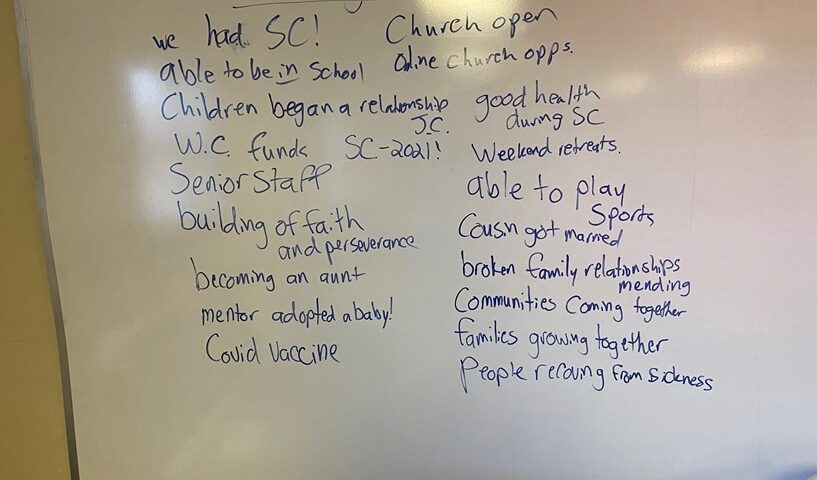 we had SC!
able to be in School
Children began a relationship
J.C.
W.C. funds SC-2021!
Senior Staff
building of faith
and perseverance
becoming an aunt
mentor adopted a baby!
Covid Vaccine
Church open
Online church opps.
good health
during SC
Weekend retreats.
able to play
Sports
Cousin got married
broken family relationships
mending
Communities Coming together
families growing together
People recoving from sickness